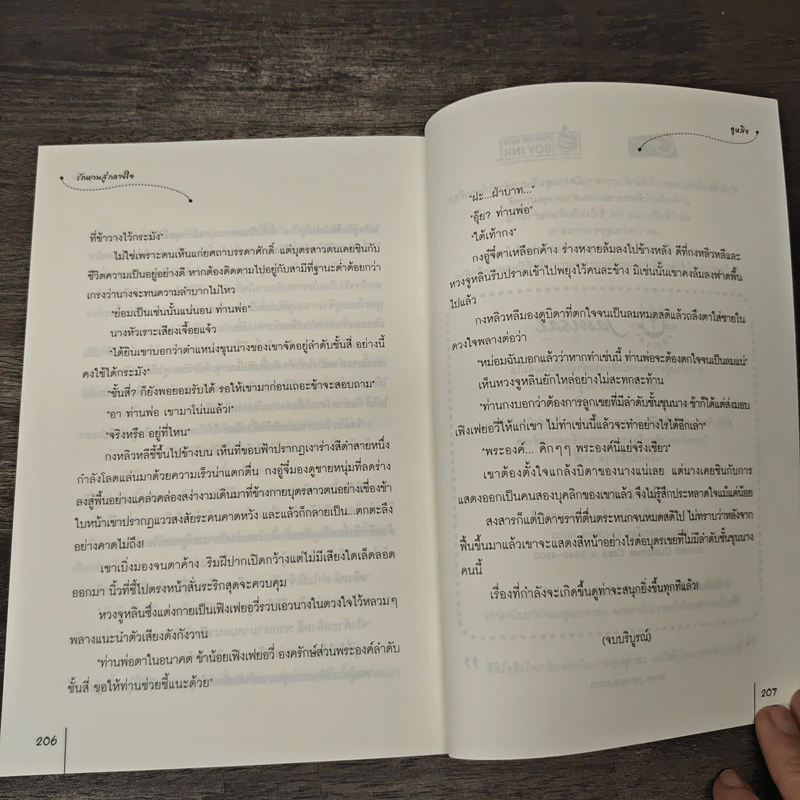 รักหวานสู่กลางใจ
ที่ข้าวางไว้กระมัง"
ไม่ใช่เพราะตนเห็นแก่ยศถาบรรดาศักดิ์ แต่บุตรสาวตนเคยชินกับ
ชีวิตความเป็นอยู่อย่างดี หากต้องติดตามไปอยู่กับสามีที่ฐานะต่ำต้อยกว่า
เกรงว่านางจะทนความลำบากไม่ไหว
"ย่อมเป็นเช่นนั้นแน่นอน ท่านพ่อ"
นางหัวเราะเสียงเจื้อยแจ้ว
"ได้ยินเขาบอกว่าตำแหน่งขุนนางของเขาจัดอยู่ลำดับชั้นสี่ อย่างนี้
คงใช้ได้กระมัง"
"ชั้นสี่? ก็ยังพอยอมรับได้ รอให้เขามาก่อนเถอะข้าจะสอบถาม"
"อา ท่านพ่อ เขามาโน่นแล้ว!"
"จริงหรือ อยู่ที่ไหน"
กงหลิวหลีชี้ขึ้นไปข้างบน เห็นที่ขอบฟ้าปรากฏเงาร่างสีดำสายหนึ่ง
กำลังโลดแล่นมาด้วยความเร็วน่าแตกตื่น กงอู๋จี้มองดูชายหนุ่มที่ลดร่าง
ลงสู่พื้นอย่างแคล่วคล่องสง่างามเดินมาที่ข้างกายบุตรสาวตนอย่างเชื่องช้า
ใบหน้าเขาปรากฏแววสงสัยระคนคาดหวัง และแล้วก็กลายเป็น...ตกตะลึง
อย่างคาดไม่ถึง!
เขาเบิ่งมองจนตาค้าง ริมฝีปากเปิดกว้างแต่ไม่มีเสียงใดเล็ดลอด
ออกมา นิ้วที่ชี้ไปตรงหน้าสั่นระริกสุดจะควบคุม
หวงจูหลินซึ่งแต่งกายเป็นเฟิงเฟยอวี่รวบเอวนางในดวงใจไว้หลวมๆ
พลางแนะนำตัวเสียงดังกังวาน
"ท่านพ่อตาในอนาคต ข้าน้อยเฟิงเฟยอวี่ องครักษ์ส่วนพระองค์ลำดับ
ชั้นสี่ ขอให้ท่านช่วยชี้แนะด้วย"
206
จูหลิง
"ฝะ...ฝ่าบาท..."
"อุ๊ย? ท่านพ่อ"
"ใต้เท้ากง"
กงอู๋จี้ตาเหลือกค้าง ร่างหงายล้มลงไปข้างหลัง ดีที่กงหลิวหลีและ
หวงจูหลินรีบปราดเข้าไปพยุงไว้คนละข้าง มิเช่นนั้นเขาคงล้มลงฟาดพื้น
ไปแล้ว
กงหลิวหลีมองดูบิดาที่ตกใจจนเป็นลมหมดสติแล้วถลึงตาใส่ชายใน
ดวงใจพลางต่อว่า
"หม่อมฉันบอกแล้วว่าหากทำเช่นนี้ ท่านพ่อจะต้องตกใจจนเป็นลมแน่"
เห็นหวงจูหลินยักไหล่อย่างไม่สะทกสะท้าน
"ท่านกงบอกว่าต้องการลูกเขยที่มีลำดับชั้นขุนนาง ข้าก็ได้แต่ส่งมอบ
เฟิงเฟยอวี่ให้แก่เขา ไม่ทำเช่นนี้แล้วจะทำอย่างไรได้อีกเล่า"
"พระองค์... คิกๆๆ พระองค์นี่แย่จริงเชียว"
เขาต้องตั้งใจแกล้งบิดาของนางแน่เลย แต่นางเคยชินกับการ
แสดงออกเป็นคนสองบุคลิกของเขาแล้ว จึงไม่รู้สึกประหลาดใจแม้แต่น้อย
สงสารก็แต่บิดาชราที่ตื่นตระหนกจนหมดสติไป ไม่ทราบว่าหลังจาก
ฟื้นขึ้นมาแล้วเขาจะแสดงสีหน้าอย่างไรต่อบุตรเขยที่ไม่มีลำดับชั้นขุนนาง
คนนี้
เรื่องที่กำลังจะเกิดขึ้นดูท่าจะสนุกยิ่งขึ้นทุกทีแล้ว!
(จบบริบูรณ์)
207